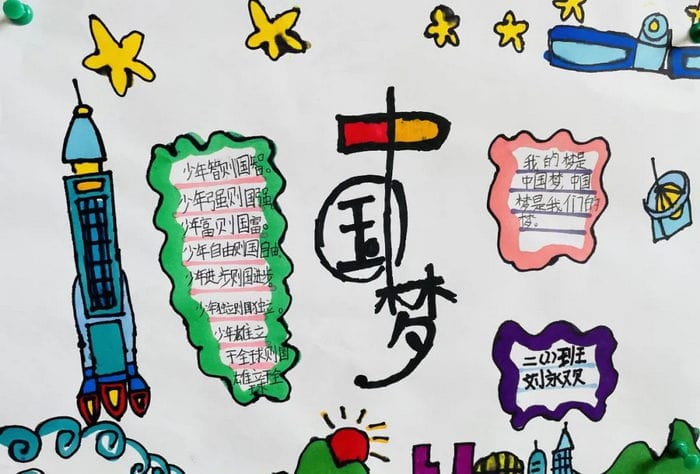 少年智则国智。
少年强则国强。
少年富则国富。
少年自由则国自由。
少年进步则国进步。
少年独立则国独立。
少年雄立
于全球则国
雄立于全
球。
中
国
梦
我的梦是
中国梦,中国
梦是我们的
梦。
二(2)班王
刘永欢